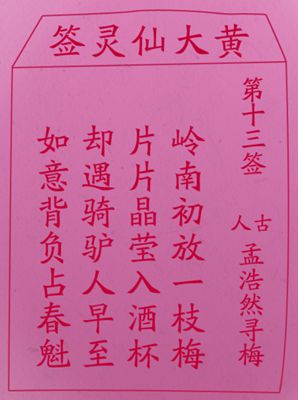 黄大仙灵签
第十三签
古人
孟浩然寻梅
岭南初放一枝梅
片片晶莹入酒杯
却遇骑驴人早至
如意背负占春魁